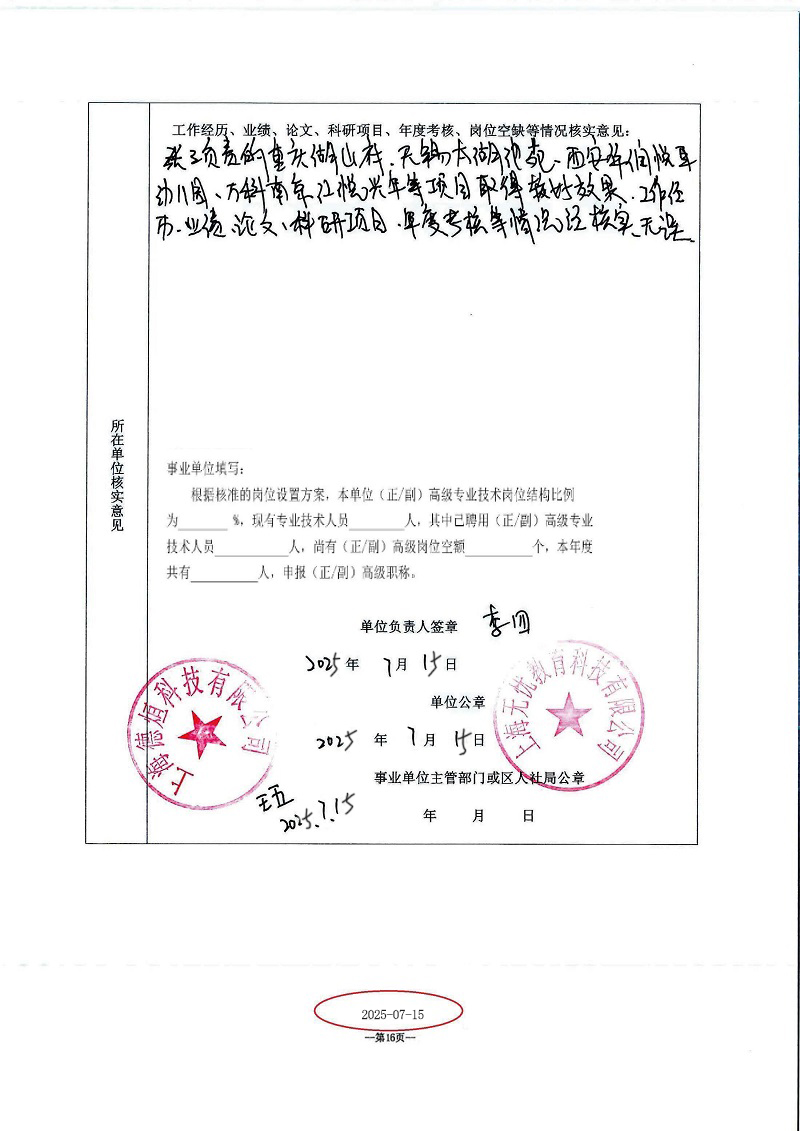 工作经历、业绩、论文、科研项目、年度考核、岗位空缺等情况核实意见:
张三负责的重庆湖山村、无锡太湖 西安华侨 
幼儿园、万科南京江悦兴年等项目取得较好效果、工作经
历、业绩、论文、科研项目、年度考核等情况经核实、无误。
所在单位核实意见
事业单位填写:
根据核准的岗位设置方案，本单位（正/副）高级专业技术岗位结构比例
为______ %，现有专业技术人员______人，其中已聘用（正/副）高级专业
技术人员________人，尚有（正/副）高级岗位空额_______个，本年度
共有_______人，申报（正/副）高级职称。
单位负责人签章 李四
2025年 7月 15日
单位公章
2025 年 7月 15日
事业单位主管部门或区人社局公章
年 月 日
上海德烜科技有限公司
上海无忧教育科技有限公司
王五
2025.7.15
2025-07-15
—第16页—